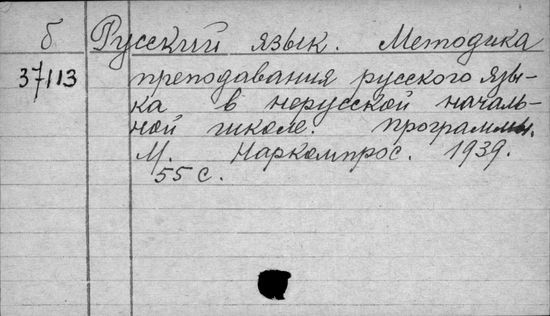 б Русский язык. Методика
37113 преподавания русского язы-
ка в нерусской началь-
ной школе. Программы.
М. Наркомпрос. 1939.
55 с.